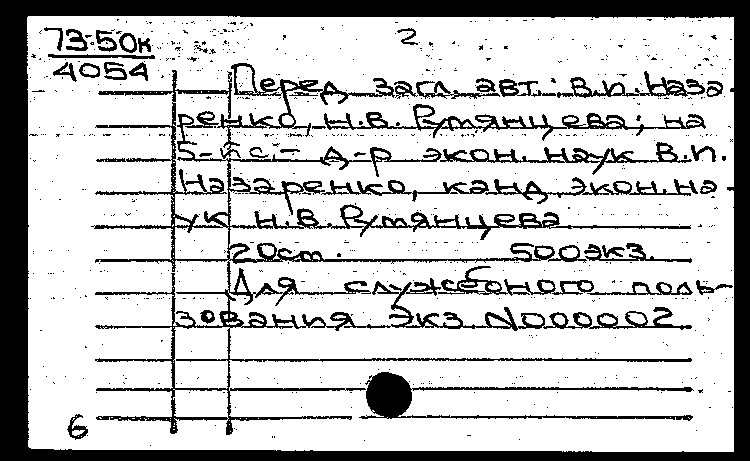 73-50к
4054
2
Перед загл. авт.: В.П. Наза-
ренко, Н.В. Румянцева; на
5-й с. - д-р экон. наук В.П.
Назаренко, канд. экон. на-
ук Н.В. Румянцева
20 cm. 500 экз.
Для служебного поль-
зования. Экз. N000002
6